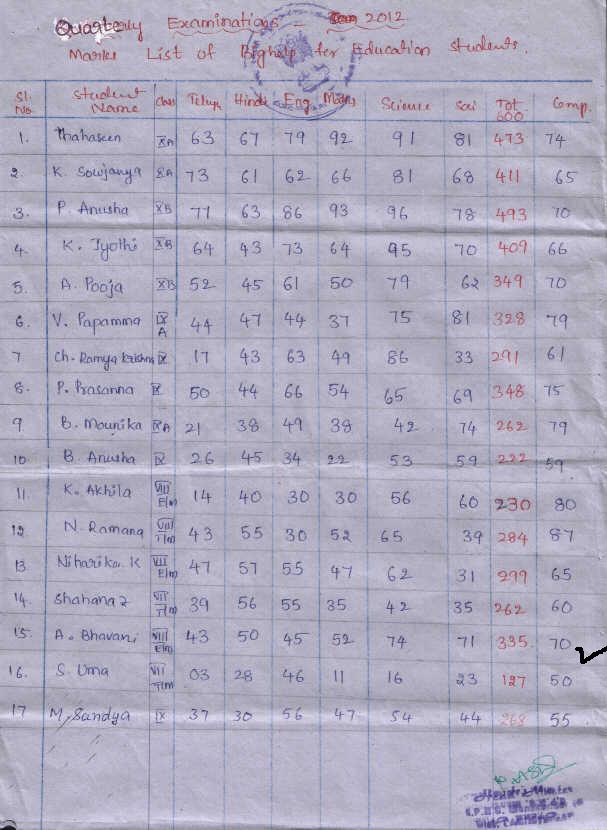 Quarterly Examinations - 2012
Marks List of Bighelp for Education Students.
Sl. No. Student Name Class Telugu Hindi Eng Maths Science Soci Tot 600 Comp.
1. Thahaseen XA 63 67 79 92 91 81 473 74
2. K. Sowjanya XA 73 61 62 66 81 68 411 65
3. P. Anusha XB 77 63 86 93 96 78 493 70
4. K. Jyothi XB 64 43 73 64 95 70 409 66
5. A. Pooja XB 52 45 61 50 79 62 349 70
6. V. Papamma IX A 44 47 44 37 75 81 328 79
7 Ch. Ramya Krishna IX 17 43 63 49 86 33 291 61
8. P. Prasanna IX 50 44 66 54 65 69 348 75
9 B. Mounika IXA 21 38 49 38 42 74 262 79
10 B. Anusha IX 26 45 34 22 53 59 222 59
11. K. Akhila VIII E/m 14 40 30 30 56 60 230 80
12 N. Ramana VIII T/m 43 55 30 52 65 39 284 87
13 Niharika. K VII E/m 47 57 55 47 62 31 299 65
14. Shahana z VII T/m 39 56 55 35 42 35 262 60
15. A. Bhavani VIII E/m 43 50 45 52 74 71 335 70
16. S. Uma VII T/m 03 28 46 11 16 23 127 50
17 M. Sandya IX 37 30 56 47 54 44 268 55